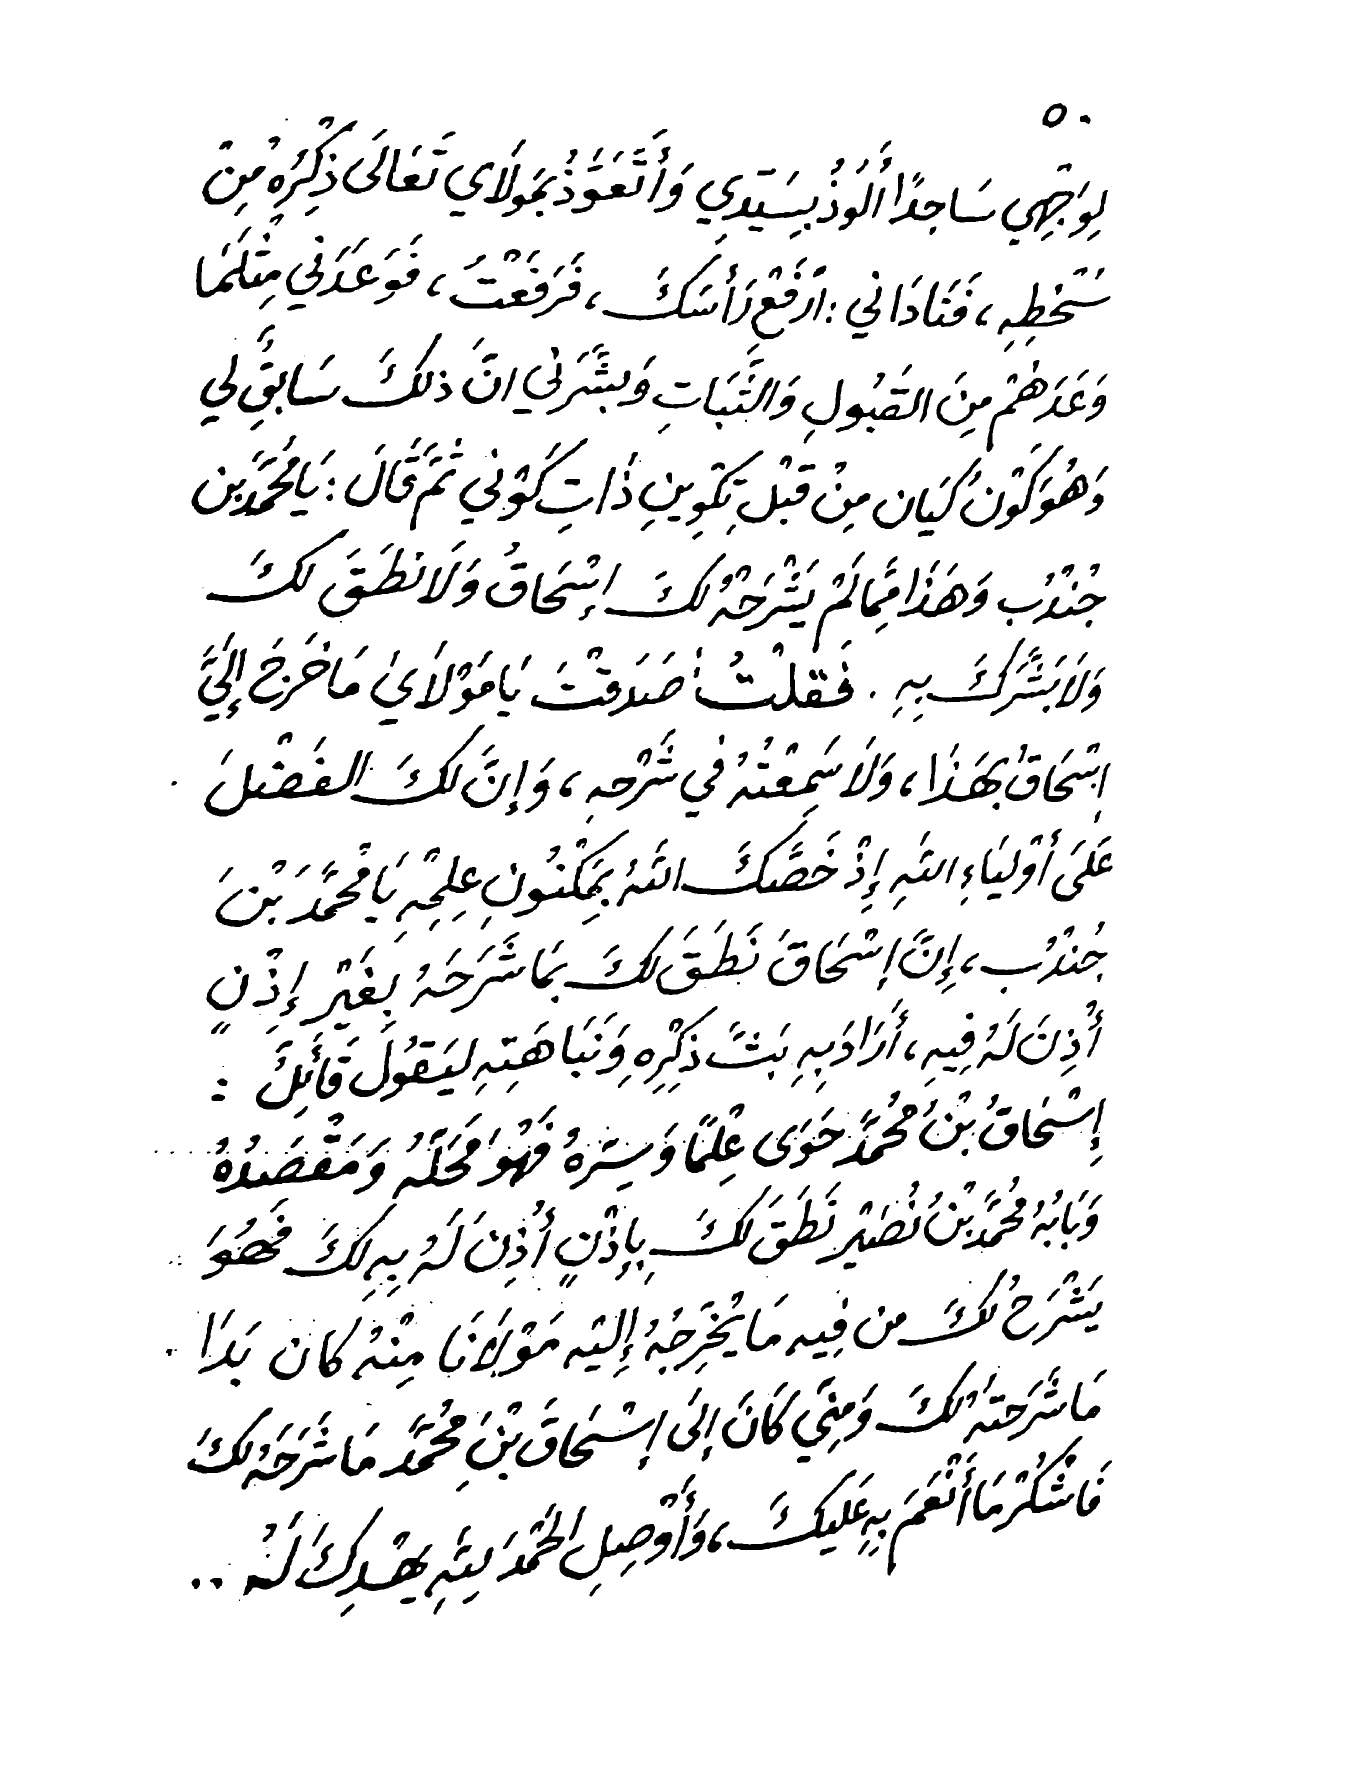 ٥٠
لِوَجْهِي سَاجِدًا أَلُوذُ بِسَيِّدِي وَأَتَعَوَّذُ بِمَولَاي تَعَالَى ذِكْرُهِ مِنْ
سَخطِهِ ، فَنَادَاني : ارْفَعْ رَأسَكَ ، فَرَفَعْتُ ، فَوَعَدَنِي مِثْلَمَا
وَعَدَهُمْ مِنَ القَبُولِ وَالثَّبَاتِ وَبَشَّرَنِي انَّ ذلكَ سَابِقٌ لي
وَهُوَ كَوْنُ كَيَان مِنْ قَبْلِ تِكْوِينِ ذَاتِ كَوْنِي ثُمَّ قَالَ : يَا مُحَمَّدُ بن
جُنْدُبِ وَهَذَا مِمَّا لَمْ يَشْرَحْهُ لكَ إِسْحَاقُ وَلَا نطَقَ لكَ
وَلَا بَشَّرَكَ بِهِ . فَقلْتُ صَدَقْتَ يَا مَوْلَايَ مَا خَرَجَ إِلَيَّ
إسْحَاقُ بِهَذَا ، وَلَا سَمِعْتُهُ فِي شَرْحِهِ ، وَإِنَّ لكَ الفَضْلَ
عَلَى أَوْليَاءِ اللَّهِ إِذْ خَصَّكَ اللَّهُ بِمَكْنُونِ عِلمِهِ يَا مُحَمَّدَ بْنَ
جُنْدُبِ ، إِنَّ إِسْحَاقَ نَطَقَ لكَ بِمَا شَرَحَهُ بِغَيْرِ إِذْنٍ
أُذِنَ لَهُ فِيهِ ، أَرَادَ بِهِ بَثَّ ذِكْرِهِ وَنَبَاهَتِهِ ليَقُولَ قَائِلٌ :
إِسْحَاقُ بْنُ مُحَمَّدٍ حَوَى عِلْمًا وَسِرُّهُ فَهُوَ مَحَلُّهُ وَمَقْصَدُهُ
وَبَابُهُ مُحَمَّدُ بْنُ نُصَيْرٍ نَطَقَ لكَ بِإِذْنٍ أُذِنَ لَهُ بِهِ لِكَ فَهُوَ
يَشْرَحُ لكَ من فِيهِ مَا يُخْرِجُهُ إِليْهِ مَوْلَانَا مِنْهُ كان بَدَا
مَا شَرَحتهُ لكَ وَمِنِّي كَانَ إِلَى إِسْحَاقَ بْنِ مُحَمَّدٍ مَا شَرَحَهُ لكَ
فَاشْكُرْ مَا أَنْعَمَ بِهِ عَليكَ ، وَأَوْصِلِ الحَمْدَ لِلَّهِ يَهْدِكَ لَهُ ..